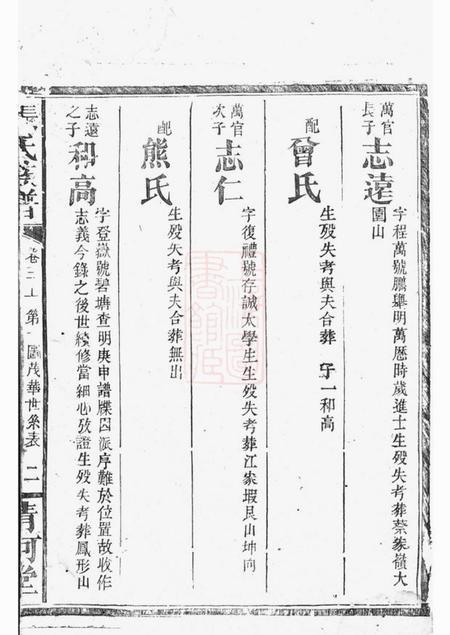 萬官長子
志遠
字程萬號鵬舉明萬厯時歲進士生殁失考葬蔡家嶺大
圍山
配
曾氏
生殁失考與夫合葬 子一和高
萬官次子
志仁
字復禮號存誠太學生生殁失考葬江家塅艮山坤向
配
熊氏
生殁失考與夫合葬無出
志遠之子
和高
字登嶽號碧塘查明庚申譜牒因派序難於位置故收作
志義今錄之後世續修當細心攷證生殁失考葬鳳形山
張氏族譜
卷三上第
圖茂華世系表
二
清河堂